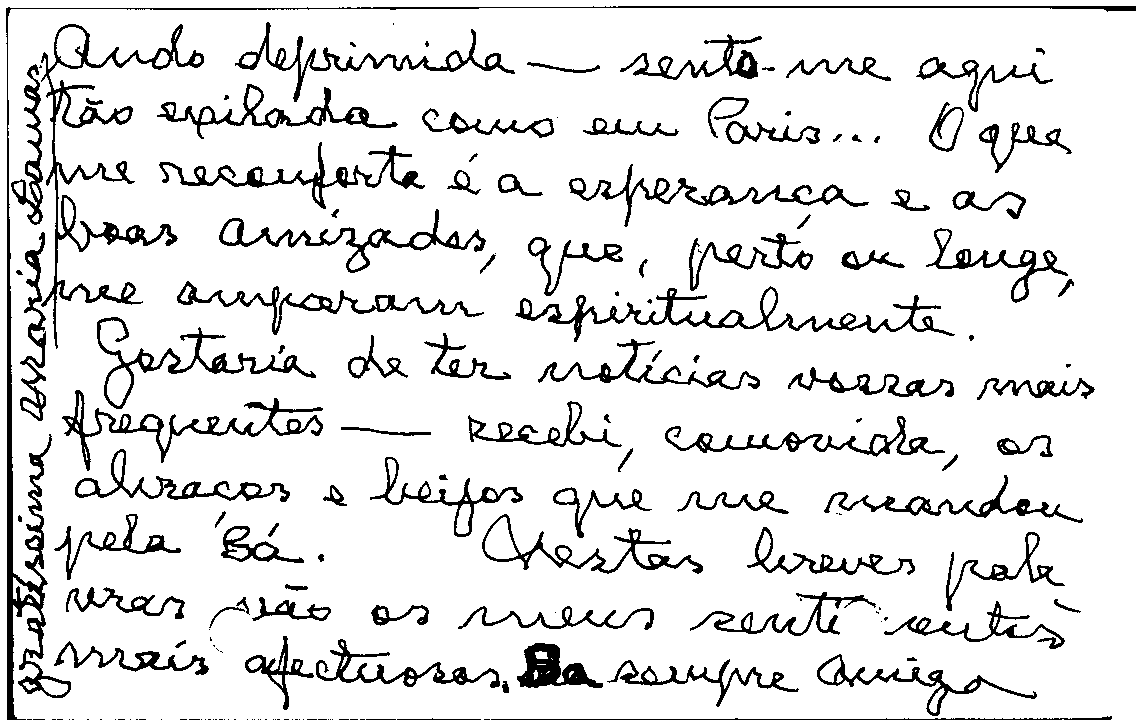 Ando deprimida — sento-me aqui
tão exilada como em Paris... O que
me reconforta é a esperança e as
boas amizades, que, perto ou longe,
me amparam espiritualmente.
Gostaria de ter notícias vossas mais
frequentes — recebi, comovida, os
abraços e beijos que me mandou
pela Bá. Nestas breves pala
vras vão os meus senti entos
mais afectuosos. Da sempre amiga
gratíssima Maria Lamas